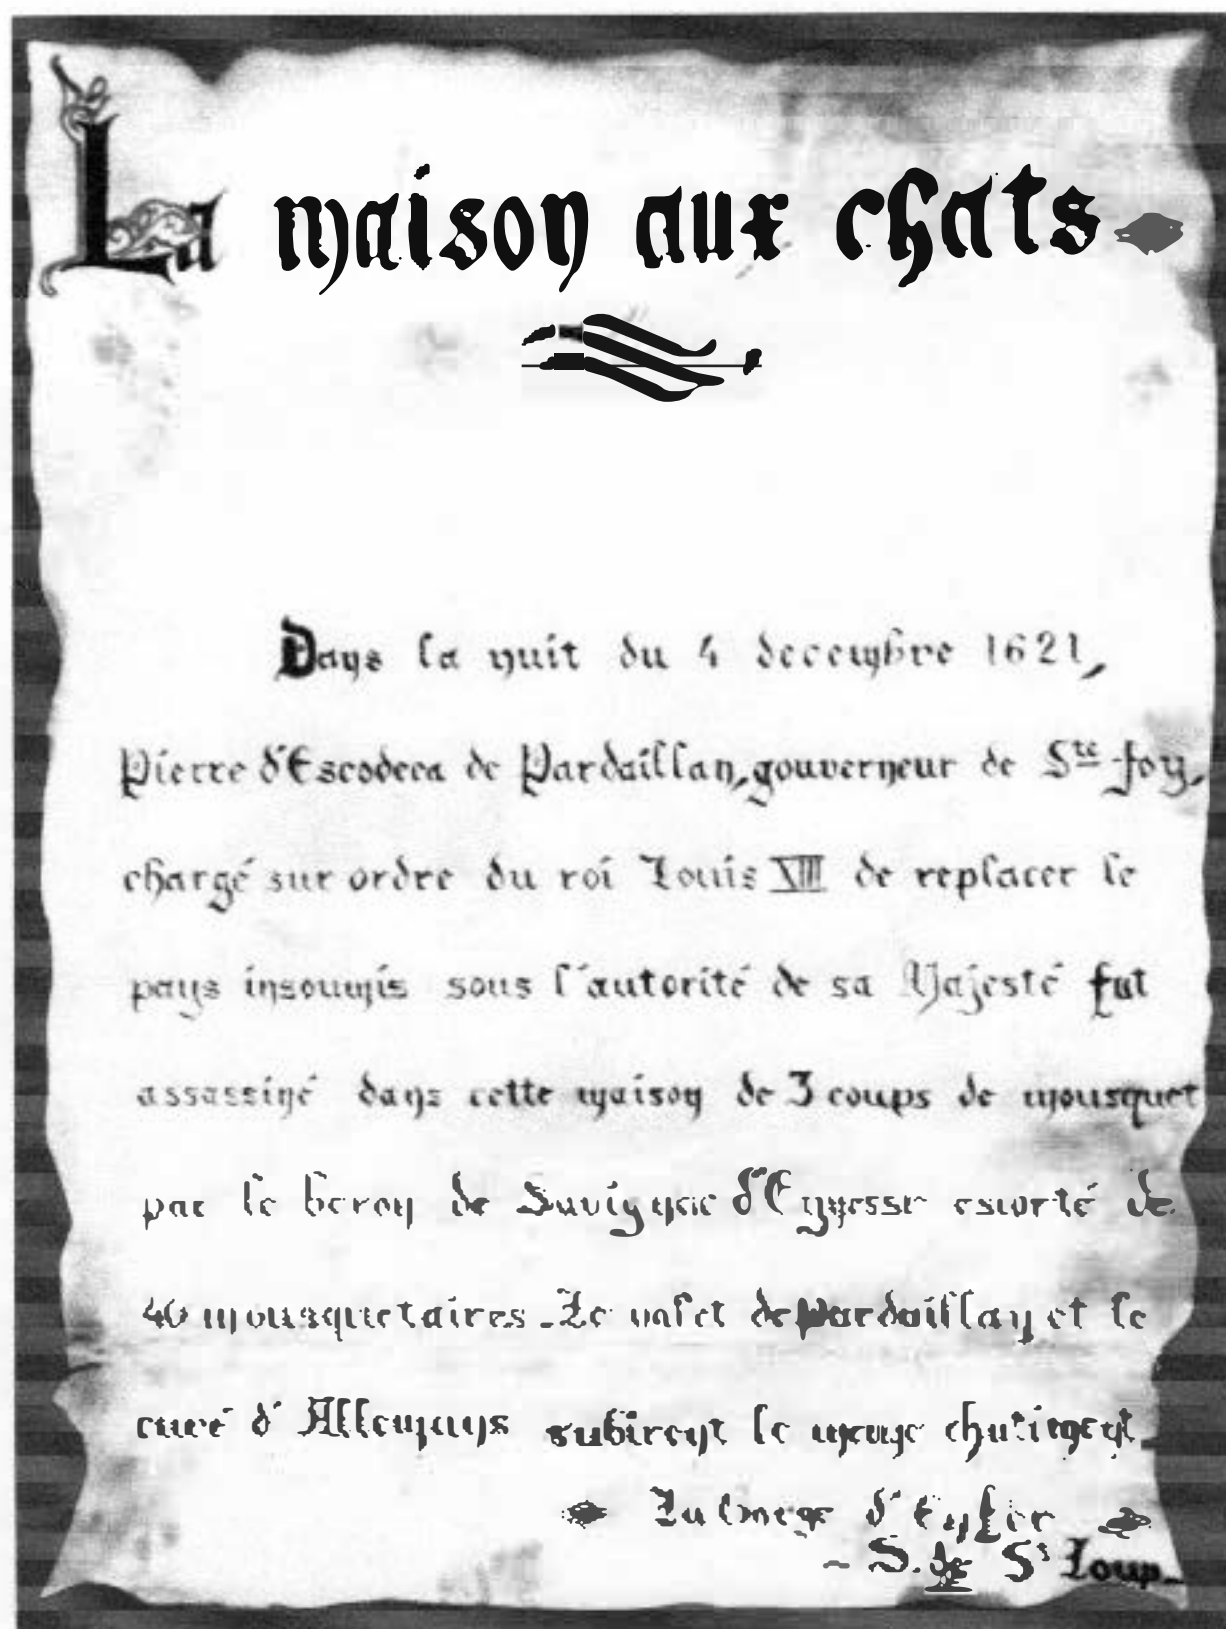 La maison aux chats
Dans la nuit du 4 decembre 1621,
Pierre d'Escodeca de Pardaillan, gouverneur de Ste-foy,
chargé sur ordre du roi Louis XIII de replacer le
pays insoumis sous l'autorité de sa Majesté fut
assassiné dans cette maison de 3 coups de mousquet
par le baron de Savignac d'Eynesse escorté de
40 mousquetaires. Le valet de Pardaillan et le
curé d'Allemans subirent le meme chatiment
d'
S. de St Loup